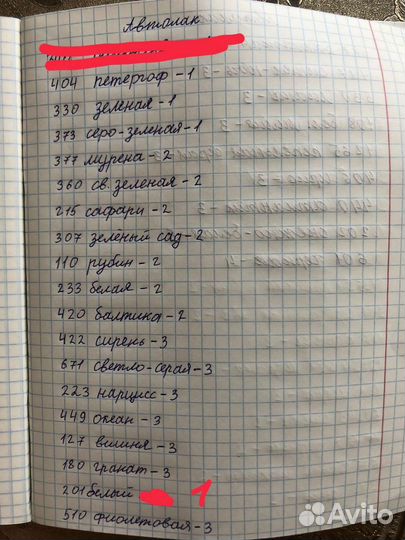 Автолак
404 петергоф - 1
330 зеленая - 1
373 серо-зеленая - 1
377 мурена - 2
360 св. зеленая - 2
215 сафари - 2
307 зеленый сад - 2
110 рубин - 2
233 белая - 2
420 балтика - 2
422 сирень - 3
671 светло-серая - 3
223 нарцисс - 3
449 океан - 3
127 вишня - 3
180 гранат - 3
201 белый 1
510 фиолетовая - 3
Avito